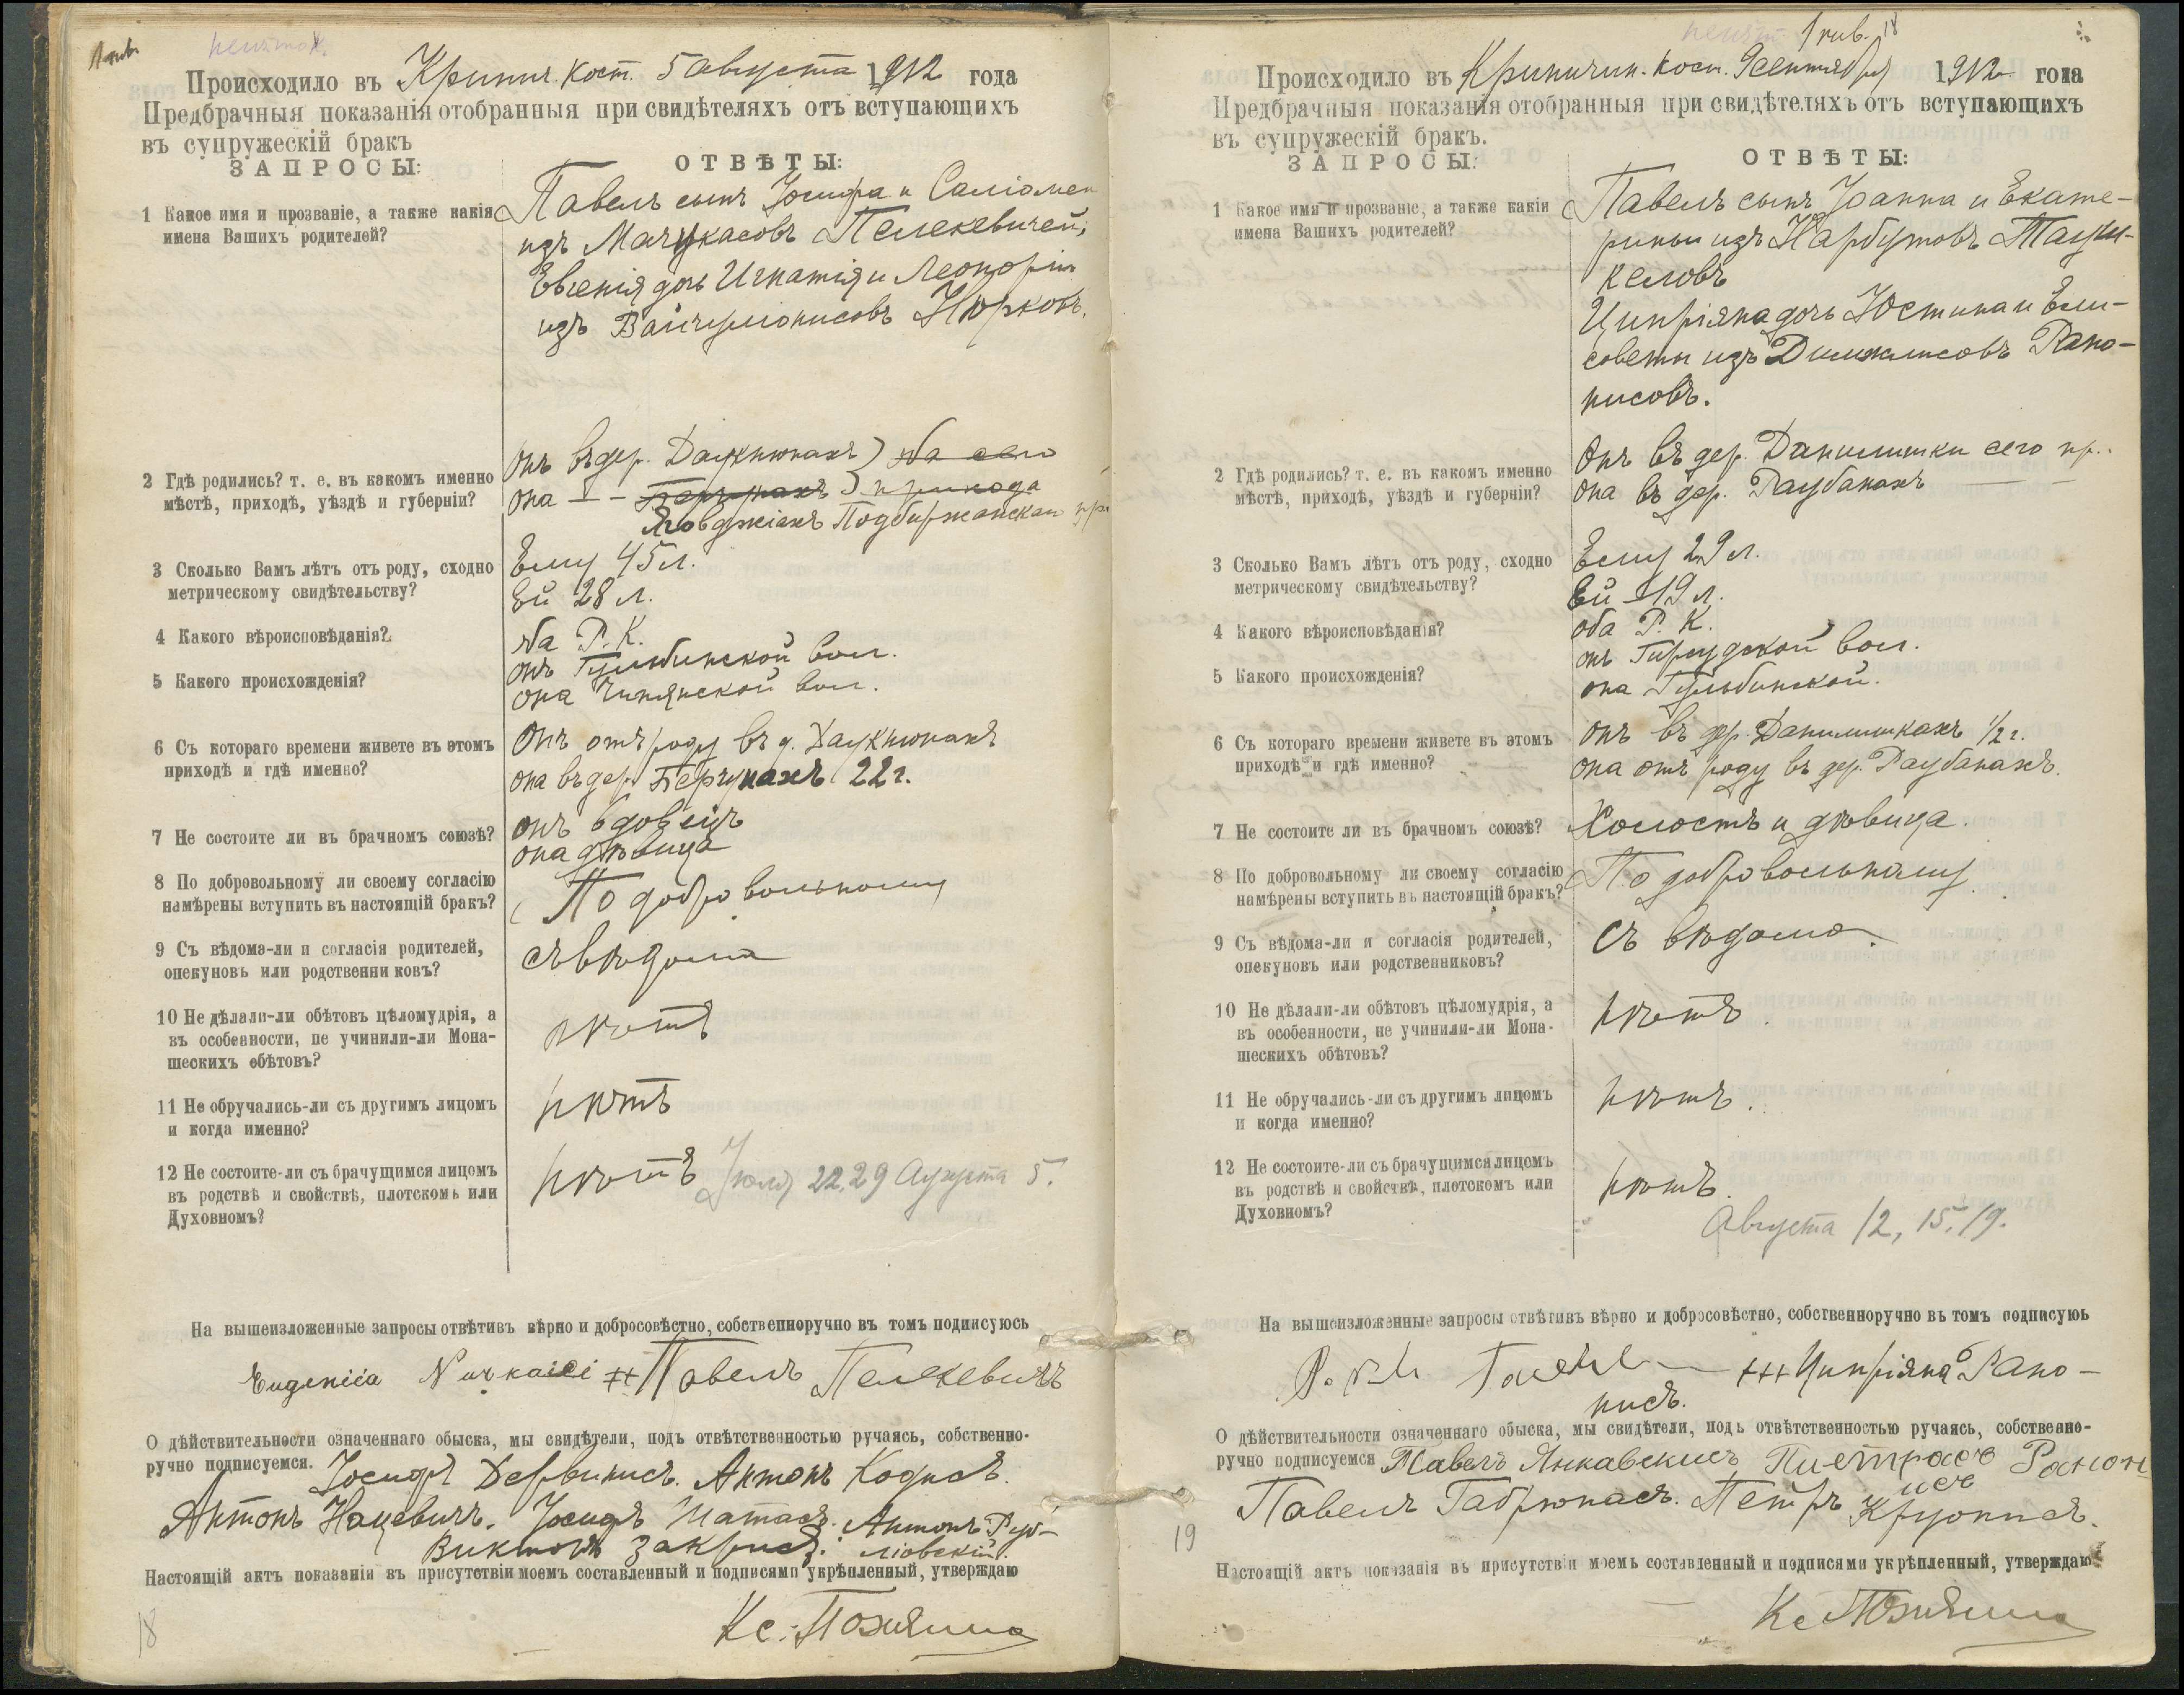 Происходило въ Кринич. Кост. 5 августа 1912 года
Предбрачныя показанія отобранныя при свидѣтеляхъ отъ вступающихъ
въ супружескій бракъ
ЗАПРОСЫ:
ОТВѢТЫ:
1 Какое имя и прозваніе, а также какія
имена Вашихъ родителей?
Павелъ сынъ Іосифа и Саліомеи
изъ Мачукасовъ Пелекевичей;
Евгенія дочь Игнатія и Леопоріи
изъ Вайчуліонисовъ Нюрковъ.
2 Гдѣ родились? т. е. въ какомъ именно
мѣстѣ, приходѣ, уѣздѣ и губерніи?
Онъ въ дер. Даукнюнахъ) оба сего
она — — Берчунахъ) прихода
Подбиржанскаго
3 Сколько Вамъ лѣтъ отъ роду, сходно
метрическому свидѣтельству?
Ему 45 л.
Ей 28 л.
4 Какого вѣроисповѣданія?
оба Р. К.
5 Какого происхожденія?
онъ Гульбинской вол.
она Чипянской вол.
6 Съ котораго времени живете въ этомъ
приходѣ и гдѣ именно?
Онъ отъ роду въ д. Даукнюнахъ
она въ дер. Берчунахъ 22 г.
7 Не состоите ли въ брачномъ союзѣ?
онъ вдовецъ
она дѣвица
8 По добровольному ли своему согласію
намѣрены вступить въ настоящій бракъ?
По добровольному
9 Съ вѣдома-ли и согласія родителей,
опекуновь или родственни ковъ?
съ вѣдома
10 Не дѣлали-ли обѣтовъ цѣломудрія, а
въ особенности, не учинили-ли Мона-
шескихъ обѣтовъ?
нѣтъ
11 Не обручались-ли съ другимъ лицомъ
и когда именно?
нѣтъ
12 Не состоите-ли съ брачущимся лицомъ
въ родствѣ и свойствѣ, плотскомь или
Духовномъ?
нѣтъ Іюля 22, 29 Августа 5.
На вышеизложенные запросы отвѣтивъ вѣрно и добросовѣстно, собственноручно въ томъ подписуюсь
Eugeniia ++ Павелъ Пелекевичъ
О дѣйствительности означеннаго обыска, мы свидѣтели, подъ отвѣтственностью ручаясь, собственно-
ручно подписуемся. Іосифъ Дервинисъ. Антонъ Кодисъ.
Антонъ Нацевичъ. Іосифъ Матасъ. Антонъ Руб-
Викторъ Закрисъ. ліовскій.
Настоящій актъ показанія въ присутствіи моемъ составленный и подписями укрѣпленный, утверждаю
18
Кс.
1 рив. 18
Происходило въ Криничин. Кост. 9 сентября 1912 года
Предбрачныя показанія отобранныя при свидѣтеляхъ отъ вступающихъ
въ супружескій бракъ.
ЗАПРОСЫ:
ОТВѢТЫ:
1 Какое имя и прозваніе, а также какіи
имена Вашихъ родителей?
Павелъ сынъ Іоанна и Екате-
рины изъ Нарбутовъ Тауки-
келовъ
Ципріяна дочь Юстина и Ели-
советы изъ Рано-
нисовъ.
2 Гдѣ родились? т. е. въ какомъ именно
мѣстѣ, приходѣ, уѣздѣ и губерніи?
Онъ въ дер. Данилишки сего пр.
она въ дер. Раубанахъ — —
3 Сколько Вамъ лѣтъ отъ роду, сходно
метрическому свидѣтельству?
Ему 29 л.
Ей 19 л.
4 Какого вѣроисповѣданія?
оба Р. К.
5 Какого происхожденія?
онъ Гирсудской вол.
она Гульбинской.
6 Съ котораго времени живете въ этомъ
приходѣ и гдѣ именно?
онъ въ дер. Данилишкахъ 1/2 г.
она отъ роду въ дер. Раубанахъ.
7 Не состоите ли въ брачномъ союзѣ?
Холостъ и дѣвица.
8 По добровольному ли своему согласію
намѣрены вступить въ настоящій бракъ?
По добровольному.
9 Съ вѣдома-ли и согласія родителей,
опекуновъ или родственниковъ?
Съ вѣдома.
10 Не дѣлали-ли обѣтовъ цѣломудрія, а
въ особенности, не учинили-ли Мона-
шескихъ обѣтовъ?
нѣтъ.
11 Не обручались-ли съ другимъ лицомъ
и когда именно?
нѣтъ.
12 Не состоите-ли съ брачущимся лицемъ
въ родствѣ и свойствѣ, плотскомъ или
Духовномъ?
нѣтъ.
Августа 12, 15, 19.
На вышоизложенные запросы отвѣтивъ вѣрно и добросовѣстно, собственноручно въ томъ подписуюь
+++ Ципріяна Рано-
нисъ.
О дѣйствительности означеннаго обыска, мы свидѣтели, подь отвѣтственностью ручаясь, собственно-
ручно подписуемся Павелъ Янкавскисъ Пиетрасъ Ранон
исъ
Павелъ Габрюнасъ. Петръ Круописъ.
19
Настоящій актъ показанія въ присутствіи моемъ составленный и подписями укрѣпленный, утверждаю
Кс